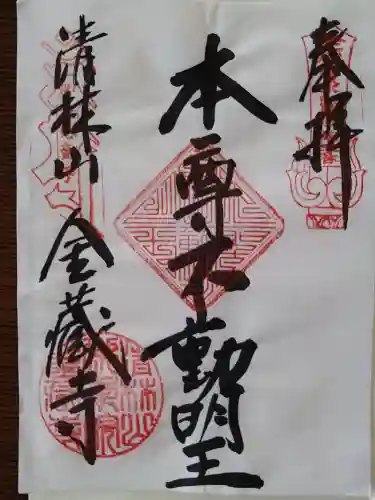 奉拝
本尊不動明王
清林山
金藏寺